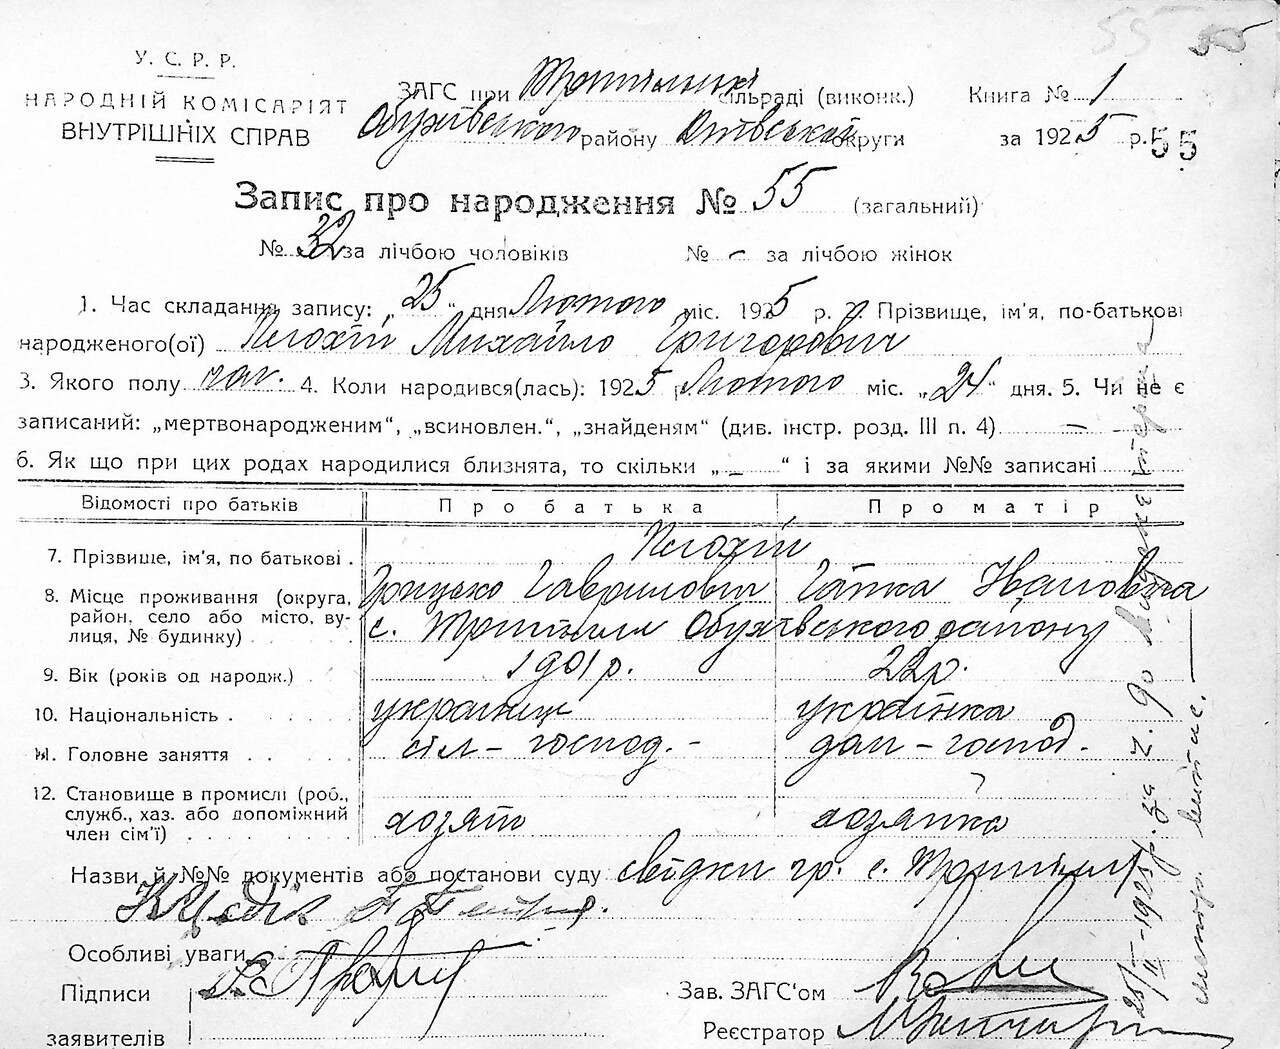 55 55
У. С. Р. Р.
НАРОДНІЙ КОМІСАРІЯТ
ВНУТРІШНІХ СПРАВ
ЗАГС при Трипільській сільраді (виконк.) Книга № 1
Обухівського району округи за 1925 р.
55
Запис про народження № 55 (загальний)
№ 32 за лічбою чоловіків № – за лічбою жінок
1. Час складання запису: „25“ дня Лютого міс. 1925 р. 2. Прізвище, ім'я, по-батькові
народженого(ої) Михайло Григорович
3. Якого полу чол. 4. Коли народився(лась): 1925 р. Лютого міс. „24“ дня. 5. Чи не є
записаний: „мертвонародженим“, „всиновлен.“, „знайденям“ (див. інстр. розд. III п. 4) –
6. Як що при цих родах народилися близнята, то скільки „–“ і за якими №№ записані
Відомості про батьків Про батька Про матір
7. Прізвище, ім'я, по батькові
Грицько Гаврилович Гапка Івановна
8. Місце проживання (округа, район, село або місто, вулиця, № будинку) с. Трипілля Обухівського району
9. Вік (років од народж.) 1901 р. 22 р.
10. Національність українець українка
11. Головне заняття сіл – господ. – дом – господ.
12. Становище в промислі (роб., служб., хаз. або допоміжний член сім'ї) хозяїн хозяйка
Назви й №№ документів або постанови суду свідки гр. с. Трипілля
Особливі уваги
Підписи
заявителів
Зав. ЗАГС'ом
Реєстратор
25/II–1925 р.